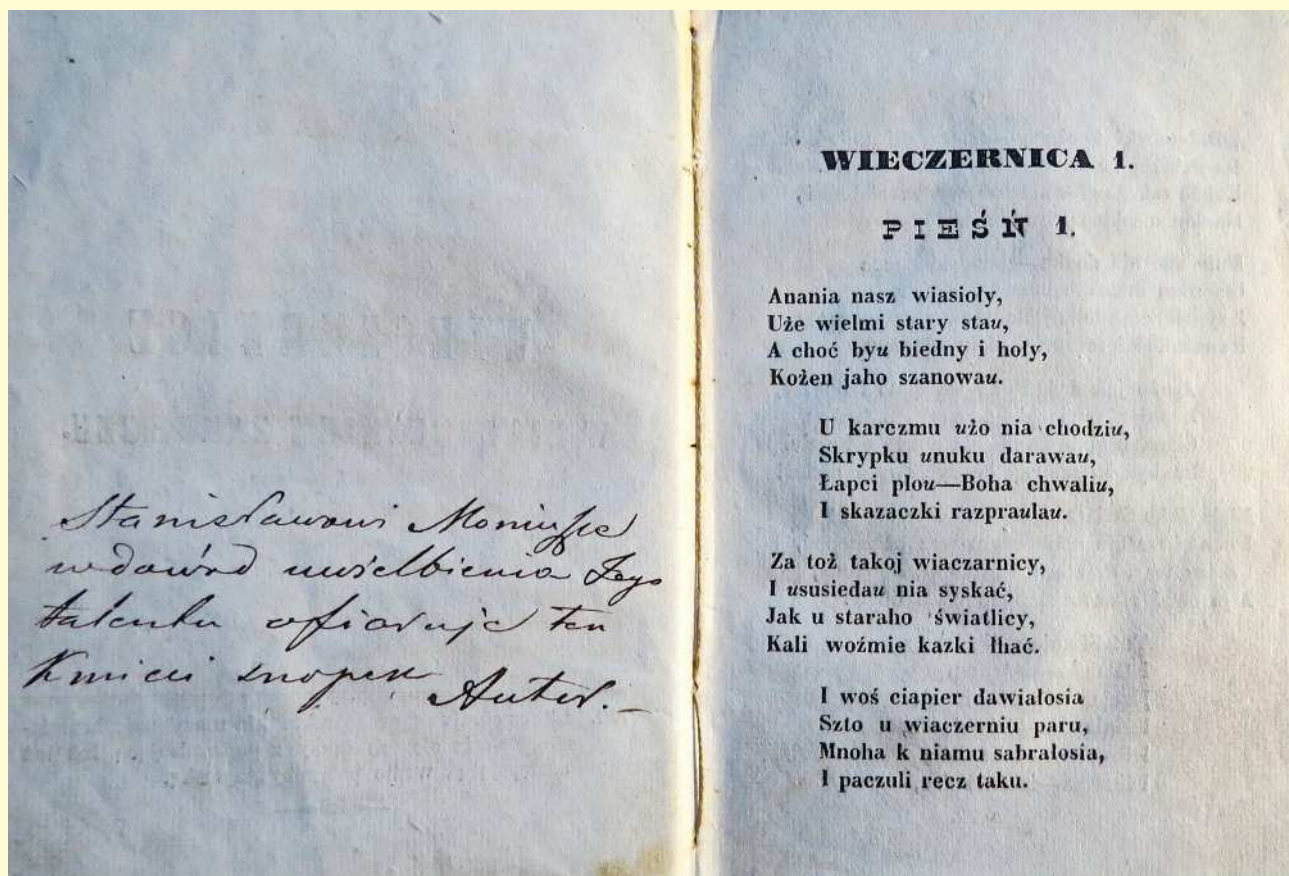 Stanisławowi Moniuszce
w dowód uwielbienia Jego
talentu ofiaruje ten
Kmieci snopek
Autor.—
WIECZERNICA 1.
PIEŚŃ 1.
Anania nasz wiasioły,
Uże wielmi stary stau,
A choć byu biedny i hoły,
Kożen jaho szanowau.
U karczmu użo nia chodziu,
Skrypku unuku darawau,
Łapci plou—Boha chwaliu,
I skazaczki razpraulau.
Za toż takoj wiaczarnicy,
I ususiedau nia syskać,
Jak u staraho światlicy,
Kali woźmie kazki łhać.
I woś ciapier dawiałosia
Szto u wiaczerniu paru,
Mnoha k niamu sabrałosia,
I paczuli recz taku.